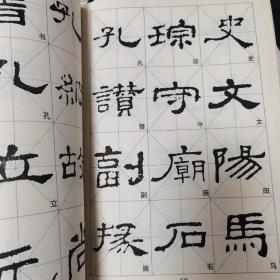 史文陽馬
史文阳马
琮守廟石
琮守庙石
孔讃副掾
孔赞副掾
孔
故
尚
孔立元
书孔立